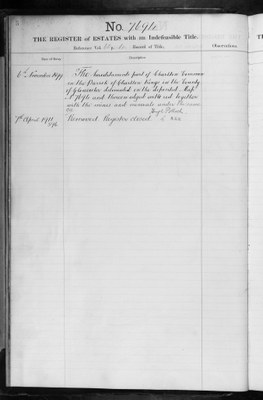 No. 7696
THE REGISTER of ESTATES with an Indefeasible Title.
Reference Vol. Parish of Title.
Observations.
Date of Entry.
Description.
6th November 1877 The hereditaments part of Charlton Common
in the Parish of Charlton Kings in the County
of Gloucester delineated in the deposited Map
and thereon edged with red together
with the mines and minerals under the same
7th April 1911 Removed. Register closed.